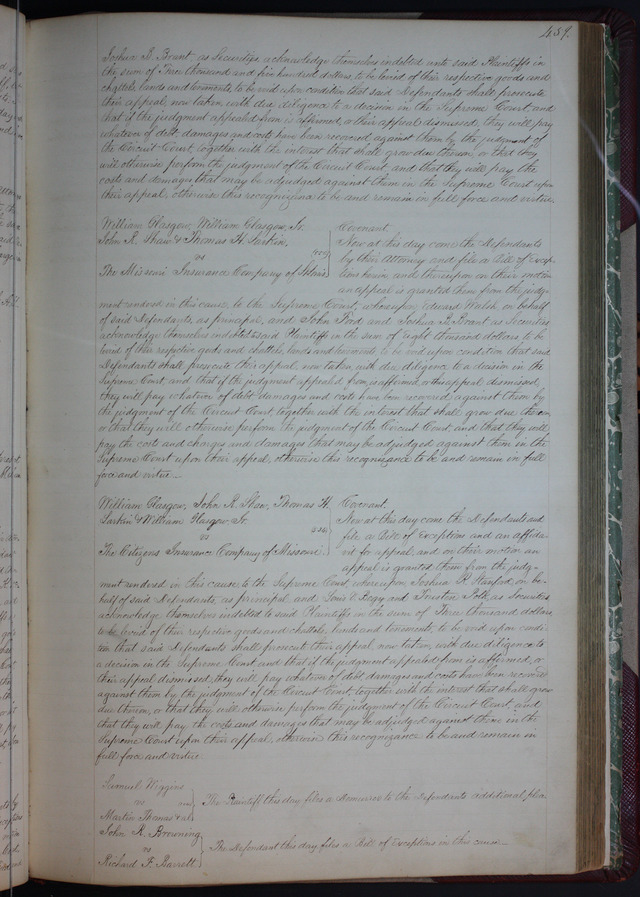 459.
Joshua B. Brant as Securities acknowledge themselves indebted unto said Plaintiffs in
the sum of Three thousand and five hundred dollars, to be levied of their respective goods and
chattels, lands and tenements, to be void upon condition that said Defendants shall prosecute
their appeal, now taken with due diligence to a decision in the Supreme Court and
that if the judgment appealed from is affirmed, or their appeal dismissed, they will pay
whatever of debt, damages and costs have been recovered against them by the judgment of
the Circuit Court together with the interest that shall grow due thereon, or that they
will otherwise perform the judgment of the Circuit Court, and that they will pay the
costs and damages that may be adjudged against them in the Supreme Court upon
their appeal, otherwise this recognizance to be and remain in full force and virtue.
William Glasgow, William Glasgow, Jr. Covenant.
John R. Shaw & Thomas H. Larkin, Now at this day come the Defendants
vs by their Attorney and file a Bill of Excep-
The Missouri Insurance Company of St Louis tions herein and thereupon on their motion
an appeal is granted them from the judg-
ment rendered in this cause, to the Supreme Court, whereupon Edward Walsh on behalf
of said Defendants, as principal, and John Ford and Joshua B. Brant as Securities
acknowledge themselves indebted to said Plaintiffs in the sum of eight thousand dollars to be
levied of their respective goods and chattels, lands and tenements, to be void upon condition that said
Defendants shall prosecute their appeal, now taken, with due diligence to a decision in the
Supreme Court, and that if the judgment appealed from, is affirmed, or their appeal dismissed,
they will pay whatever of debt damages and costs have been recovered against them by
the judgment of the Circuit Court, together with the interest that shall grow due thereon,
or that they will otherwise perform the judgment of the Circuit Court, and that they will
pay the costs and charges and damages that may be adjudged against them in the
Supreme Court upon their appeal, otherwise this recognizance to be and remain in full
force and virtue.
William Glasgow, John R. Shaw, Thomas H. Covenant.
Larkin & William Glasgow, Jr. Now at this day come the Defendants and
vs file a Bill of Exceptions and an affida-
The Citizens Insurance Company of Missouri. vid for appeal, and on their motion an
appeal is granted them from the judg-
ment rendered in this cause to the Supreme Court, whereupon Joshua on be-
half of said Defendants, as principal and and Trusten Polk, as Securities
acknowledge themselves indebted to said Plaintiffs in the sum of Three thousand dollars
to be levied of their respective goods and chattels, lands and tenements, to be void upon condi-
tion that said Defendants shall prosecute their appeal, now taken, with due diligence to
a decision in the Supreme Court and that if the judgment appealed from is affirmed, or
their appeal dismissed, they will pay whatever of debt damages and costs have been recovered
against them by the judgment of the Circuit Court, together with the interest that shall grow
due thereon, or that they will otherwise perform the judgment of the Circuit Court, and
that they will pay the costs and damages that may be adjudged against them in the
Supreme Court upon their appeal, otherwise this recognizance to be and remain in
full force and virtue
Samuel Wiggins
vs The Plaintiff this day files a Demurrer to the Defendants additional plea
Martin Thomas & al
John R. Browning
vs The Defendant this day files a Bill of Exceptions in this cause.
Richard F. Barrett